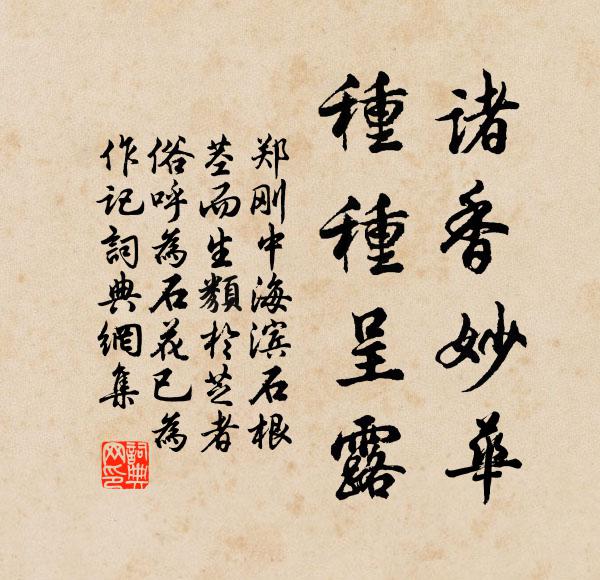 诸香妙華
種種呈露
郑刚中海滨石根
茎而生類於芝者
俗呼為石花已為
作记詞典網集
詞典网印